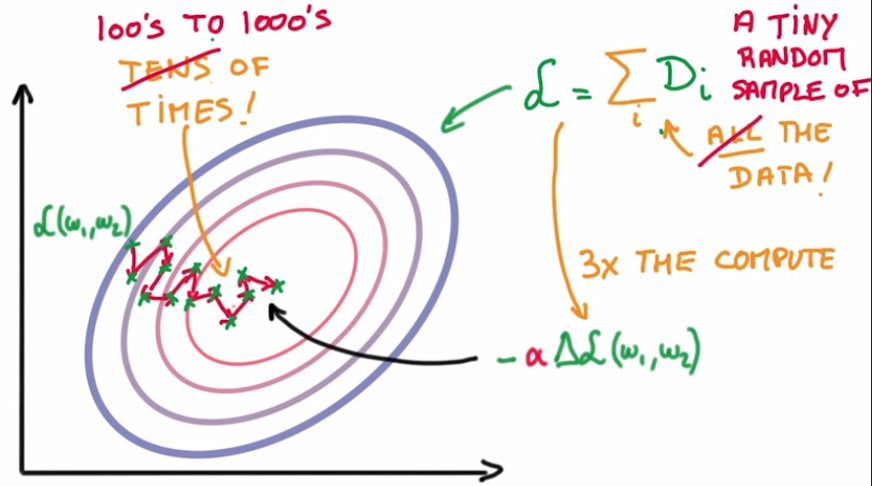 100's TO 1000's
TENS OF
TIMES!
ℒ(ω₁,ω₂)
ℒ = Σᵢ Dᵢ
A TINY
RANDOM
SAMPLE OF
ALL THE
DATA!
3x THE COMPUTE
-α Δℒ(ω₁,ω₂)